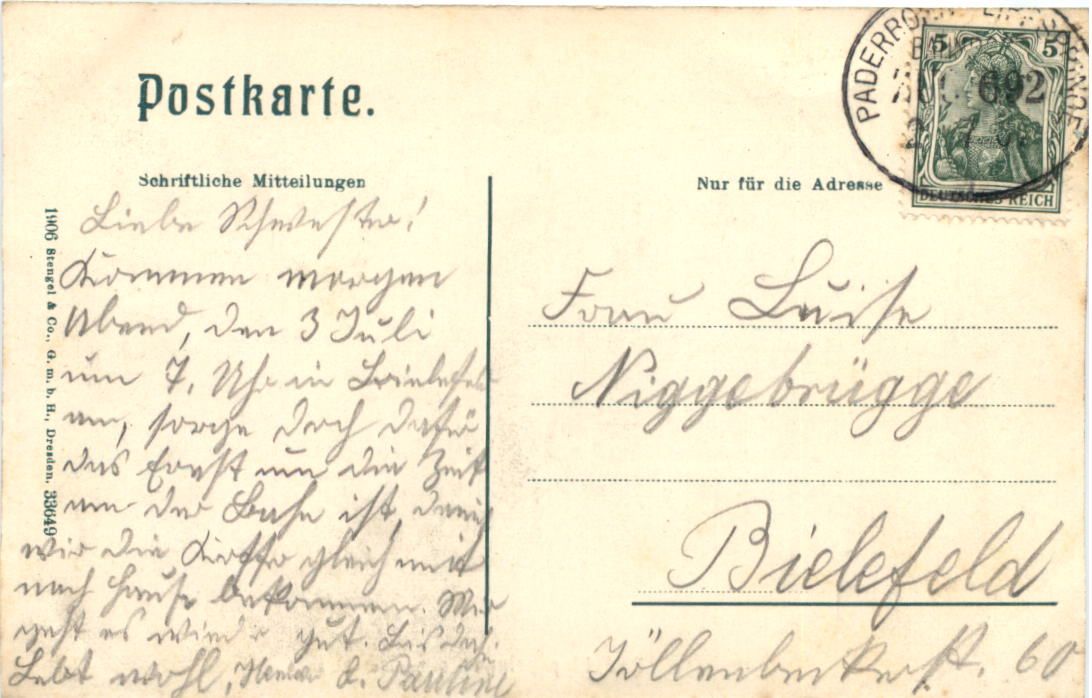 Postkarte.
Schriftliche Mitteilungen
Nur für die Adresse
1906 Stengel & Co., G. m. b. H., Dresden. 33649
5 5
DEUTSCHES REICH
PADERBORN
692
Liebe Schwester!
Kommen morgen
Abend, den 3 Juli
um 7. Uhr in Brielefeld
an, sorge doch dafür
das Ernst um die Zeit
an der Bahn ist, damit
wir die Koffer gleich mit
nach Hause bekommen. Mir
geht es wieder gut. Bis dah.
Lebt wohl, L. Pauline
Frau Luise
Niggebrügge
Bielefeld
Jöllenbeckerst. 60